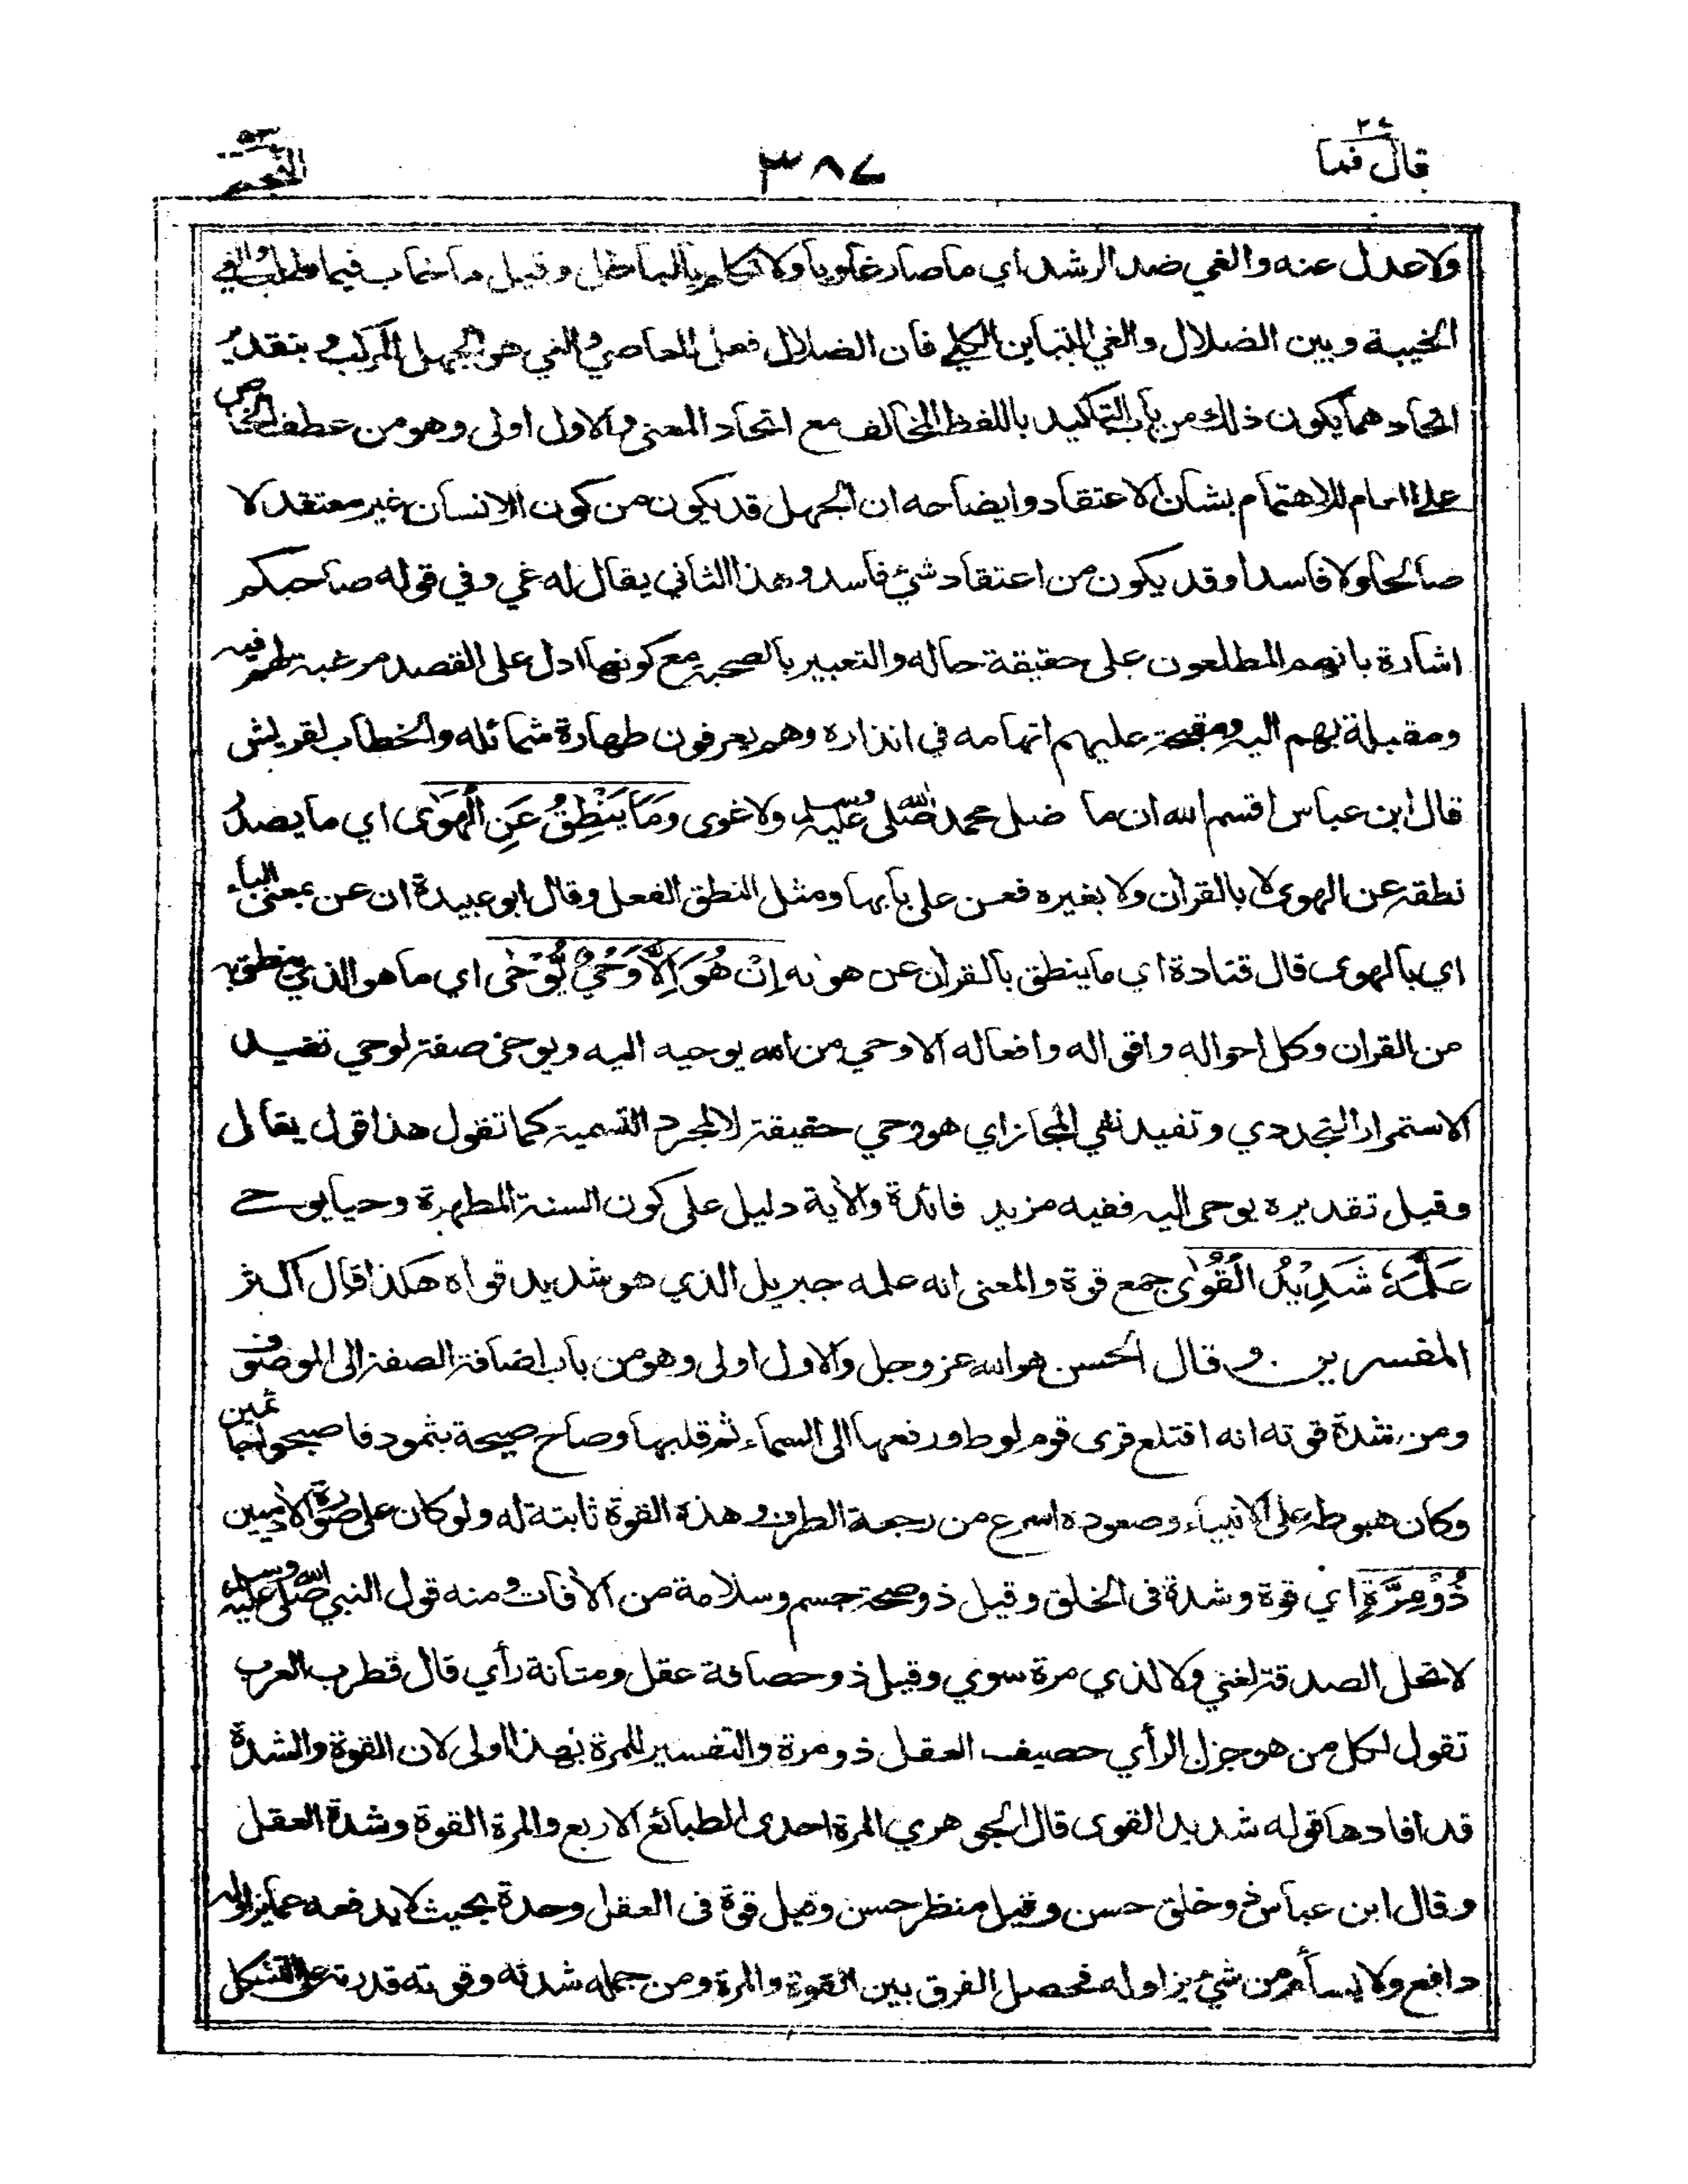 قال فما
٢٧
٣٨٧
النجم
٥٣
ولا عدل عنه والغي ضد الرشد اي ما صار غاويا ولا تكلم بالباطل وقيل ما خاب فيما طلب والغي
الخيبة وبين الضلال والغي التباين الكلي فان الضلال فعل المعاصي والغي هو الجهل المركب و بتقدير
اتحادهما يكون ذلك من باب التاكيد باللفظ المخالف مع اتحاد المعنى والاول اولى وهو من عطف الخاص
على العام للاهتمام بشان الاعتقاد وايضاحه ان الجهل قد يكون من كون الانسان غير معتقد لا
صالحا ولا فاسدا وقد يكون من اعتقاد شيء فاسد وهذا الثاني يقال له غي وفي قوله صاحبكم
اشارة بانهم المطلعون على حقيقة حاله والتعبير بالصحبة مع كونها ادل على القصد مرغبة لهم فيه
ومقبلة بهم اليه ومقبحة عليهم اتهامه في انذاره وهم يعرفون طهارة شمائله والخطاب لقريش
قال ابن عباس اقسم الله ان ما ضل محمد صلى الله عليه وسلم ولا غوى وَمَا يَنْطِقُ عَنِ الْهَوٰى اي ما يصدر
نطقه عن الهوى لا بالقرآن ولا بغيره فعن على بابها ومثل النطق الفعل وقال ابو عبيدة ان عن بمعنى الباء
اي بالهوى قال قتادة اي ما ينطق بالقرآن عن هواه إِنْ هُوَ إِلَّا وَحْيٌ يُّوْحٰى اي ما هو الذي ينطق به
من القران وكل احواله واقواله وافعاله الا وحي من الله يوحيه اليه ويوحى صفة لوحي تفيد
الاستمرار التجددي وتفيد نفي المجاز اي هو وحي حقيقة لا لمجرد التسمية كما تقول هذا قول يقال
وقيل تقديره يوحى اليه ففيه مزيد فائدة والآية دليل على كون السنة المطهرة وحيا يوحى
عَلَّمَهٗ شَدِيْدُ الْقُوٰى جمع قوة والمعنى انه علمه جبريل الذي هو شديد قواه هكذا قال اكثر
المفسرين و قال الحسن هو الله عز وجل والاول اولى وهو من باب اضافة الصفة الى الموصوف
ومن شدة قوته انه اقتلع قرى قوم لوط ورفعها الى السماء ثم قلبها وصاح صيحة بثمود فاصبحوا جاثمين
وكان هبوطه على الانبياء وصعوده اسرع من رجعة الطرف وهذه القوة ثابتة له ولو كان على صورة الآدميين
ذُوْ مِرَّةٍ اي قوة وشدة فى الخلق وقيل ذو صحة جسم وسلامة من الآفات ومنه قول النبي صلى الله عليه وسلم
لا تحل الصدقة لغني ولا لذي مرة سوي وقيل ذو حصافة عقل ومتانة رأي قال قطرب العرب
تقول لكل من هو جزل الرأي حصيف العقل ذو مرة والتفسير للمرة بهذا اولى لان القوة والشدة
قد افادها قوله شديد القوى قال الجوهري المرة احدى الطبائع الاربع والمرة القوة وشدة العقل
وقال ابن عباس ذو خلق حسن وقيل منظر حسن وقيل قوة فى العقل وحدة بحيث لا يدفعه عما يزاوله
دافع ولا يسأم من شيء يزاوله فحصل الفرق بين القوة والمرة ومن جمله شدته وقوته قدرته على التشكل